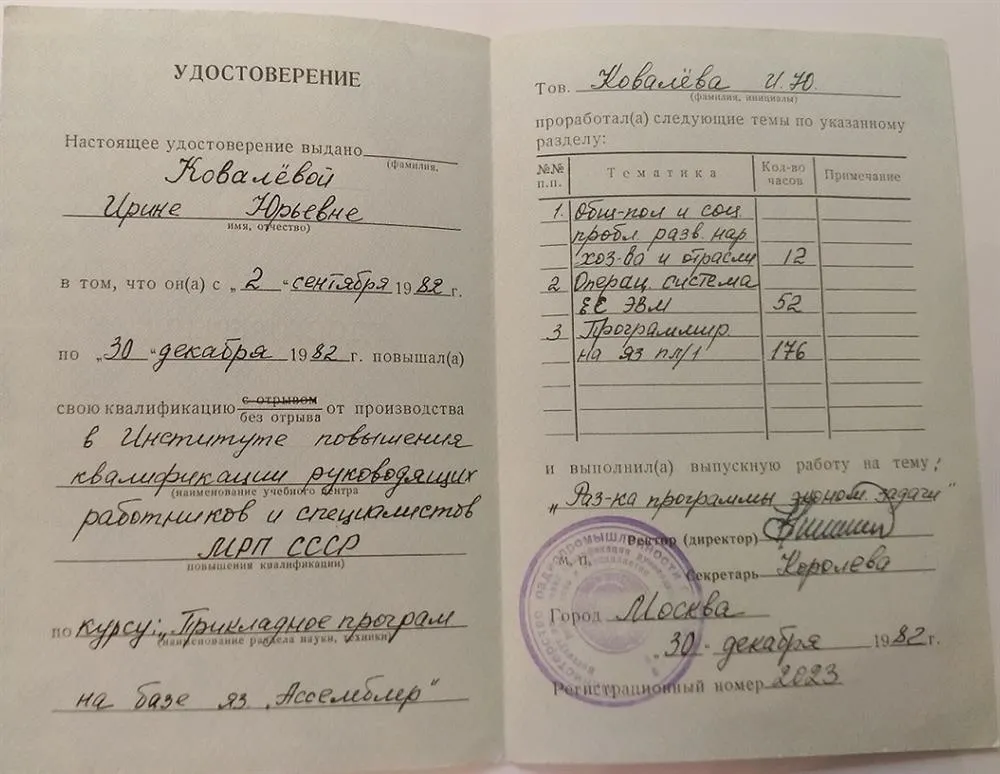 УДОСТОВЕРЕНИЕ
Настоящее удостоверение выдано
(фамилия,
Ковалёвой
Ирине Юрьевне
имя, отчество)
в том, что он(а) с „2“ сентября 1982 г.
по „30“ декабря 1982 г. повышал(а)
свою квалификацию с отрывом от производства
без отрыва
в Институте повышения
квалификации руководящих
(наименование учебного центра
работников и специалистов
МРП СССР
повышения квалификации)
по курсу: „Прикладное програм
(наименование раздела науки, техники)
на базе яз. „Ассемблер“
Тов. Ковалёва И.Ю.
(фамилия, инициалы)
проработал(а) следующие темы по указанному
разделу:
№№ п.п. Тематика Кол-во часов Примечание
1. Общ-пол и соц.
пробл. разв. нар
хоз-ва и отрасли 12
2 Операц. система
ЕС ЭВМ 52
3 Программир.
на яз пл/1 176
и выполнил(а) выпускную работу на тему:
„Раз-ка программы эконом. задачи“
Ректор (директор)
М. П.
Секретарь Королева
Город Москва
„30“ декабря 1982 г.
Регистрационный номер 2023
радиопромышленности